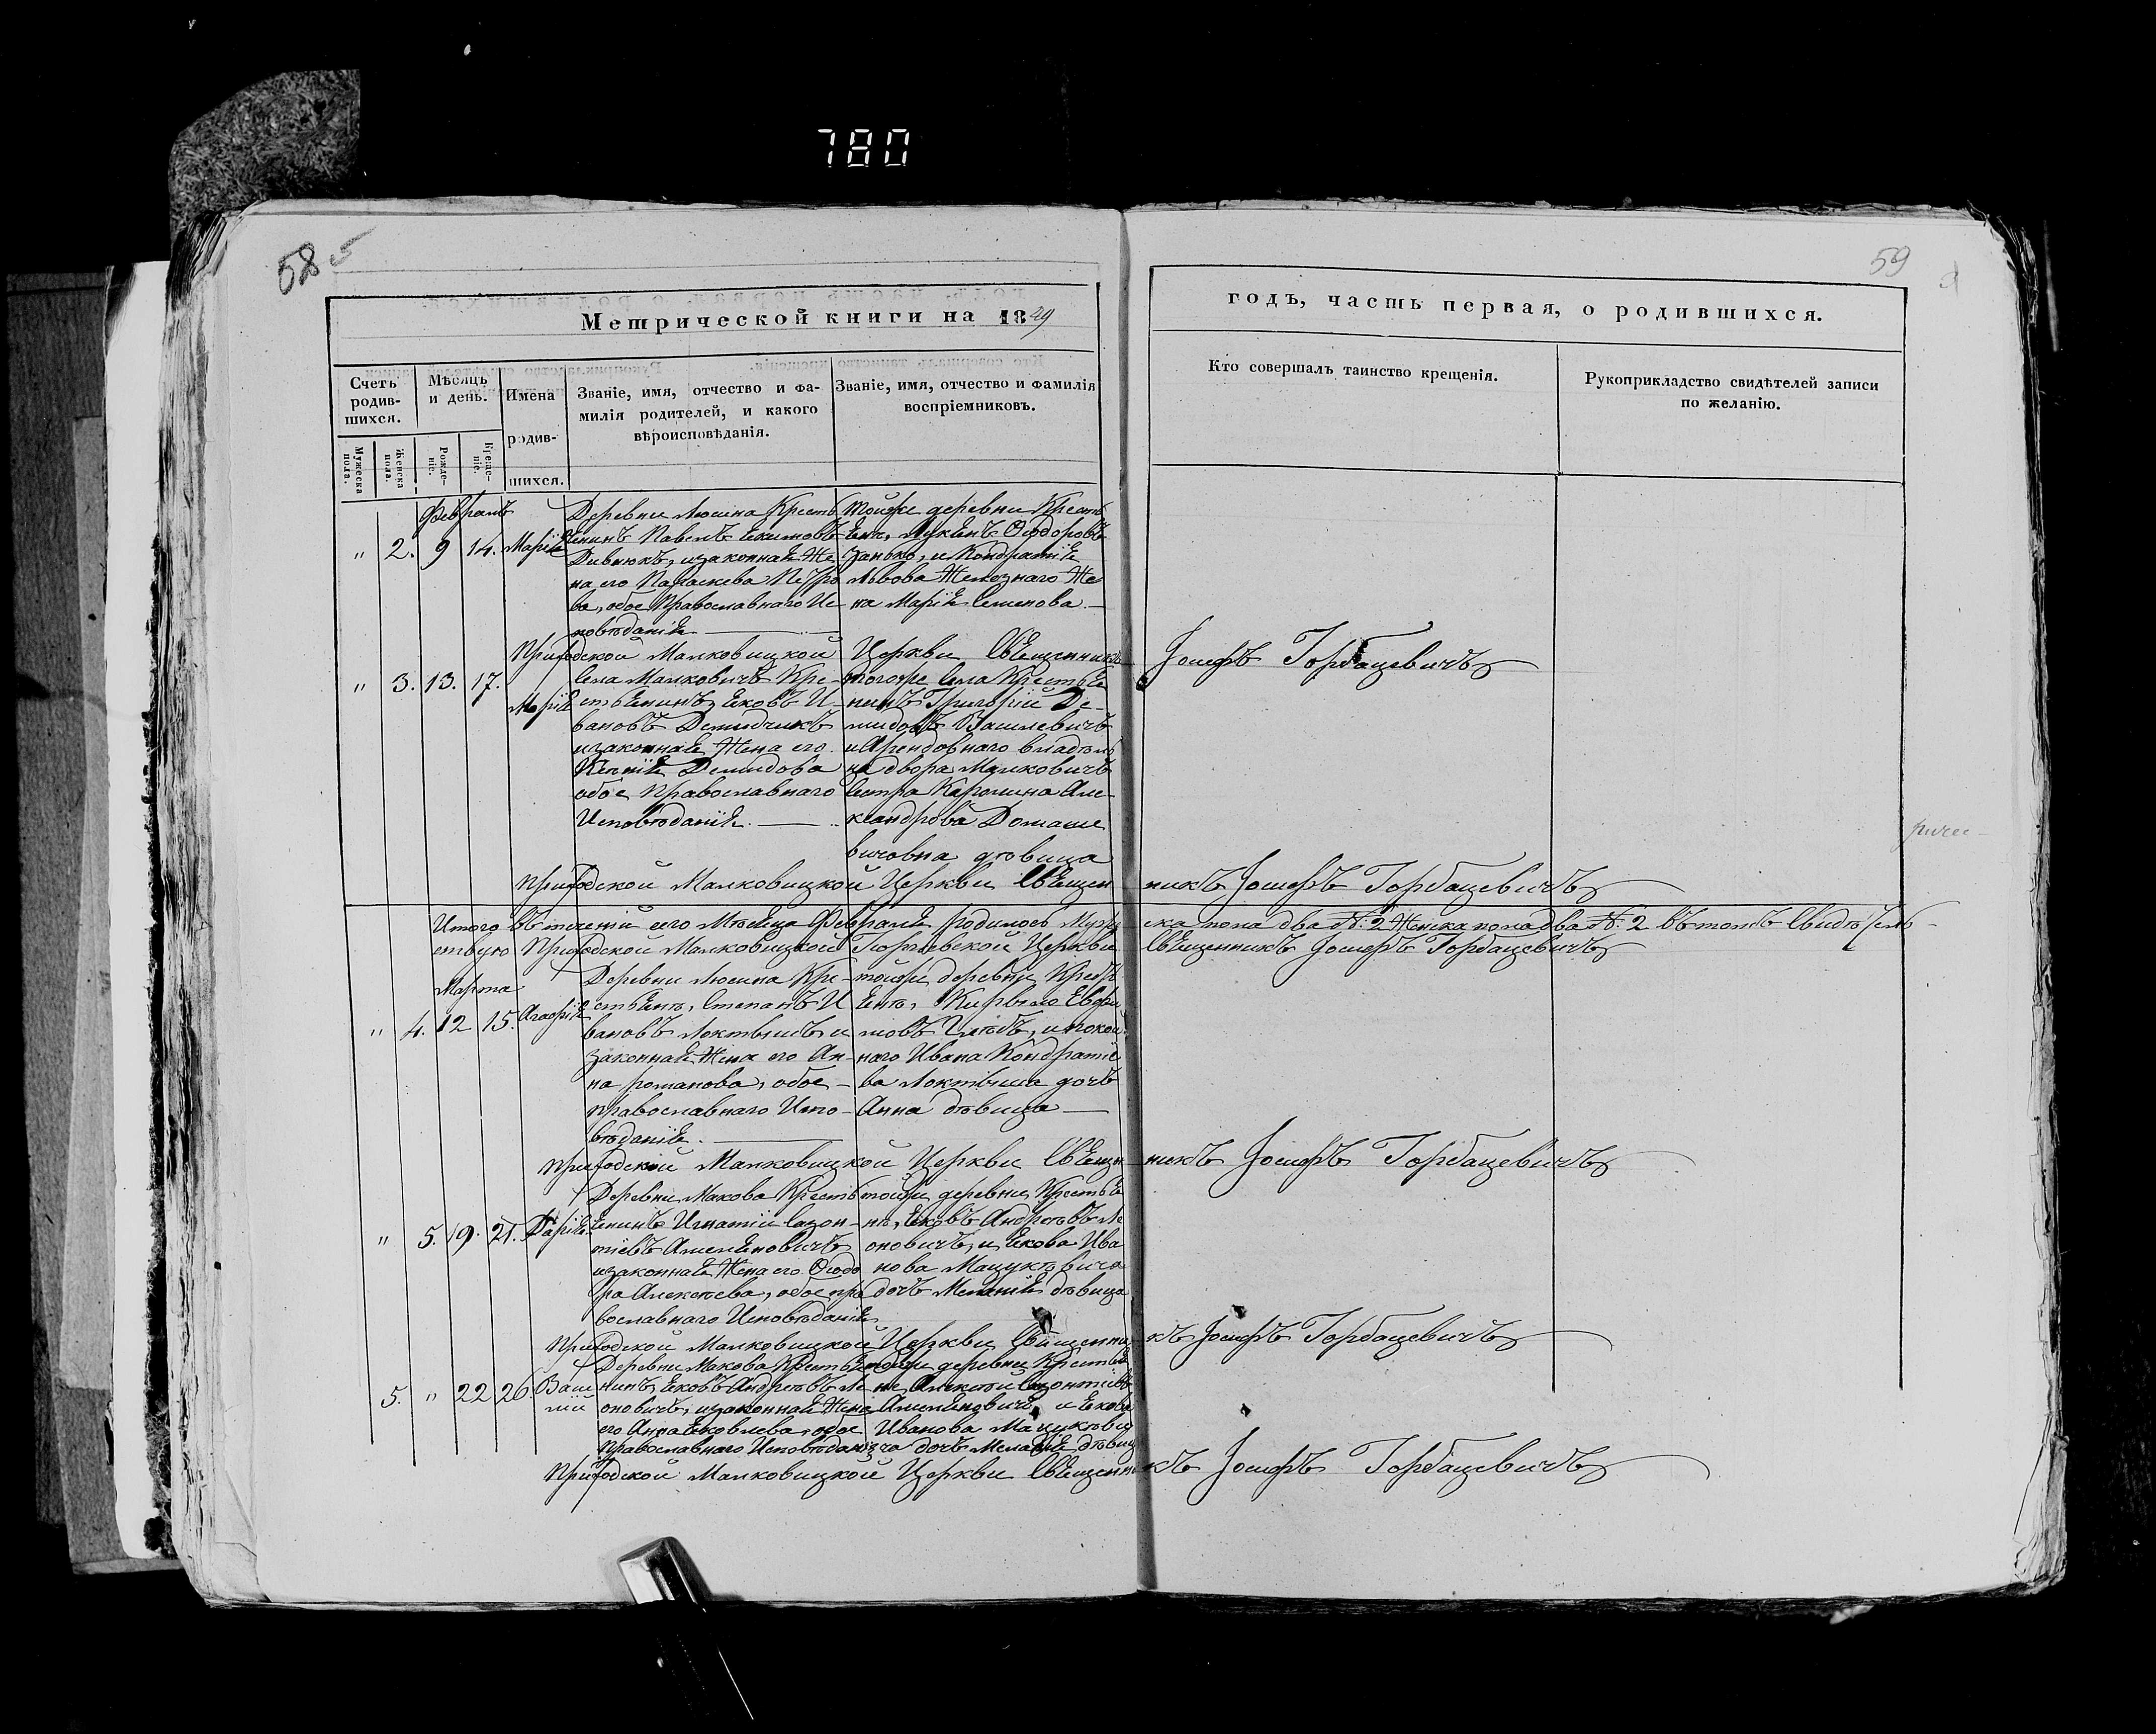 780
58 5
59
Метрической книги на 1849
годъ, часть первая, о родившихся.
Счетъ родив-шихся.
Мѣсяцъ и день.
Имена родив-шихся.
Званіе, имя, отчество и фа-
милія родителей, и какого
вѣроисповѣданія.
Званіе, имя, отчество и фамилія
воспріемниковъ.
Кто совершалъ таинство крещенія.
Рукоприкладство свидѣтелей записи
по желанію.
Мужеска пола.
Женска пола.
Рожде-ніе.
Креще-ніе.
Февраль
" 2. 9 14. Марія
Деревни Люсина Кресть
янинъ Павелъ Екимовъ
Дивнюкъ, изаконная Же-
на его Параскева Петро
ва, обое Православнаго Ис-
повѣданія
тойже деревни Кресть
янъ, Лукьянъ Ѳеодоровъ
Занько, и Кондратія
Львова Железнаго Же
на Марія Семенова
Приходской Малковицкой Церкви Священникъ Іосифъ Горбацевичъ
" 3. 13. 17. Марія
Села Малковичъ Кре-
стьянинъ Яковъ И-
вановъ Демидчикъ
изаконная Жена его
Ксенія Демидова
обое Православнаго
Исповѣданія.
тогоже Села Крестья
нинъ Григорій Де-
мидовъ Василевичъ
и Арендовнаго владѣль
ца двора Малковичъ
сестра Каролина Але-
ксандрова Домаше
вичовна дѣвица
Приходской Малковицкой Церкви Священникъ Іосифъ Горбацевичъ
Итого въ теченіи сего Мѣсяца Февраля родилось Муже ска пола два №: 2 Женска пола два №: 2 вътомъ Свидѣтель-
ствую Приходской Малковицкой Георгіевской Церкви Священникъ Іосифъ Горбацевичъ
Марта
" 4. 12 15. Агафія
Деревни Люсина Кре-
стьянъ, Степанъ И
вановъ Локтышъ, и
законная Жена его Ан-
на романова, обое
православнаго Испо-
вѣданія.
тойже деревни Кресть
янъ, Кирыло Евфи
мовъ Глѣбъ, ипокой
наго Ивана Кондратіе
ва Локтыша дочь
Анна дѣвица
Приходской Малковицкой Церкви Священникъ Іосифъ Горбацевичъ
" 5. 19. 21. Дарія.
Деревни Макова Кресть
янинъ Игнатій Сазон-
тіевъ Амельяновичъ
изаконная Жена его Ѳеодо
ра Алексѣева, обое пра
вославнаго Исповѣданія
тойже деревни Крестья
нъ, Яковъ Андрѣевъ Ле
оновичъ, и Якова Ива
нова Мацукевича
дочь Меланія дѣвица
Приходской Малковицкой Церкви Священникъ Іосифъ Горбацевичъ
5. " 22 26. Васи
лій
Деревни Макова Крестья
нинъ, Яковъ Андрѣевъ Ле
оновичъ, изаконная Жена
его Анна Яковлева, обое
православнаго Исповѣданія
тойже деревни Крестья
не Алексѣй Сазонтіевъ
Амельяновичъ, и Якова
Иванова Мацукеви
ча дочь Меланія дѣвица
Приходской Малковицкой Церкви Священникъ Іосифъ Горбацевичъ